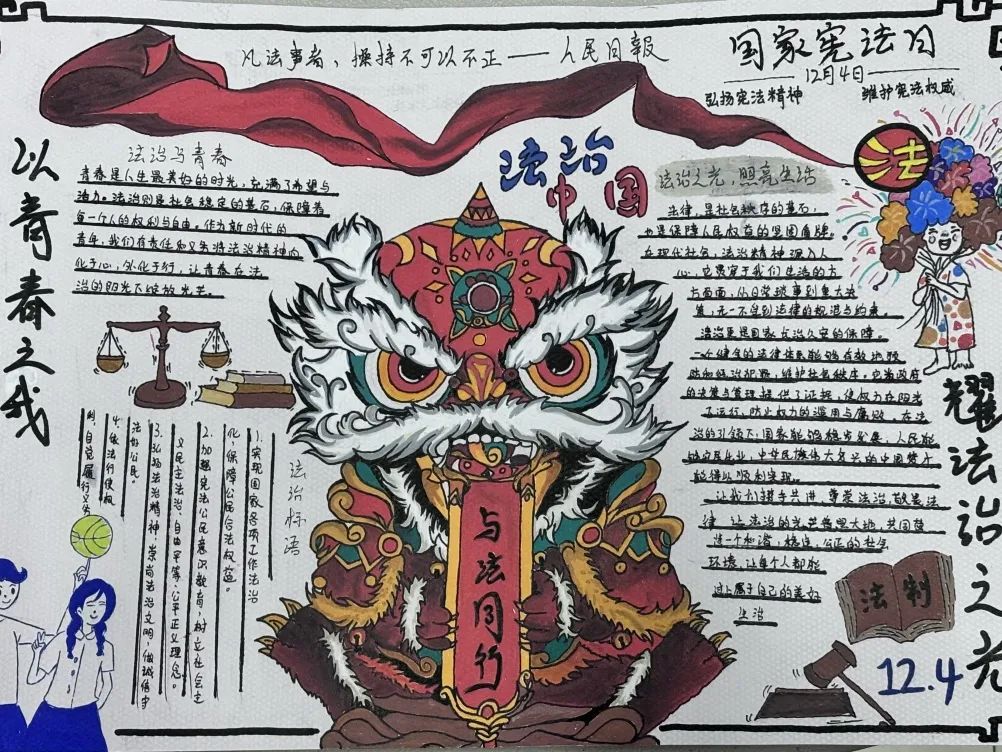 凡法事者，操持不可以不正——人民日報
国家宪法日
12月4日
弘扬宪法精神
维护宪法权威
以青春之我
法治与青春
青春是人生最美好的时光，充满了希望与
潜力。法治则是社会稳定的基石，保障着
每一个人的权利与自由。作为新时代的
青年，我们有责任和义务将法治精神内
化于心，外化于行，让青春在法
治的阳光下绽放光芒。
法治
中国
法
法治之光，照亮生活
法律，是社会秩序的基石，
也是保障人民权益的坚固盾牌。
在现代社会，法治精神深入人
心，它贯穿于我们生活的方
方面面，从日常琐事到重大决
策，无一不受到法律的规范与约束。
法治更是国家长治久安的保障。
一个健全的法律体系能够有效地预
防和惩治犯罪，维护社会秩序。它为政府
的决策与管理提供了证据，使权力在阳光
下运行，防止权力的滥用与腐败。在法
治的引领下，国家能够稳步发展，人民能
够安居乐业，中华民族伟大复兴的中国梦才
能得以顺利实现。
让我们携手共进，尊崇法治，敬畏法
律，让法治的光芒照耀大地，共同营
造一个和谐，稳定，公正的社会
环境，让每个人都能
过上属于自己的美好
生活
法治标语
1.实现国家各项工作法治
化，保障公民合法权益。
2.加强宪法公民意识教育，树立社会主
义民主法治、自由平等、公平正义理念。
3.弘扬法治精神，崇尚法治文明，做诚信守
法好公民。
4.依法行使权
利，自觉履行义务
与法同行
法制
12.4
耀法治之光